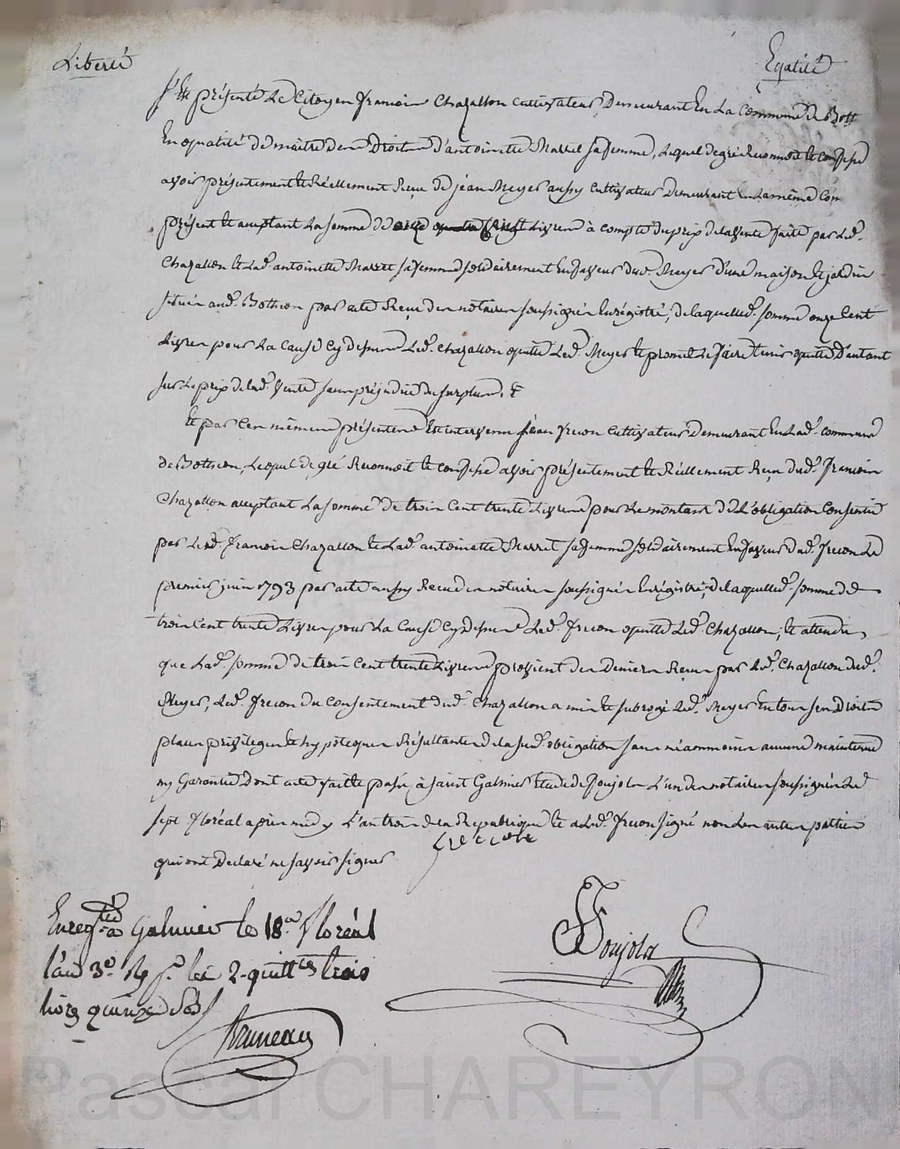 Liberté
Egalité
S'est présenté Le Citoyen francois Chazallon cultivateur Demeurant En La Commune de Both
En qualité de maitre des Droits d'antoinette Marret sa femme, Lequel de gré Reconnoit et confesse
avoir présentement et Réellement Reçu de jean Meyer aussy Cultivateur Demeurant En La même Com
présent et acceptant La somme de livres à compte du prix de la vente faite par Led.
Chazallon et Lad. antoinette Marret sa femme solidairement En faveur dud. Meyer d'une maison et jardin
situés aud. Botheon par acte Reçu des notaires soussignés Enrégistré, de laquelle d. somme onze Cent
Livres pour La Cause Cy dessus Led. Chazallon quitte Led. Meyer et promet Le faire tenir quitte D'autant
sur Le prix de lad. Vente sans préjudice du surplus.
Et par Ces mêmes présentes Est intervenu jean frecon Cultivateur Demeurant En Lad. commune
de Botheon, Lequel de gré Reconnoit et confesse avoir présentement et Réellement Reçu dud. francois
Chazallon acceptant La somme de trois Cent trente Livres pour Le montant de L'obligation Consentie
par Led. francois Chazallon et Lad. antoinette Marret sa femme solidairement En faveur dud. frecon Le
premier juin 1793 par acte aussy Recu des notaires soussignés Enrégistré, de laquelle d. somme de
trois Cent trente Livres pour La Cause Cy dessus Led. frecon quitte Led. Chazallon, et attendu
que Lad. somme de trois Cent trente Livres provient des Deniers Reçus par Led. Chazallon dud.
Meyer, Led. frecon du Consentement dud. Chazallon a mis et subrogé Led. Meyer En tous ses Droits
places privileges et hypoteques Résultants de la sud. obligation sans néammoins aucune maintenue
ny Garantie Dont acte fait et passé à Saint Galmier Etude de Poujola L'un des notaires soussignés Le
sept floréal après midy L'an trois de la République et a Led. frecon signé non Les autres parties
qui ont Declaré ne savoir signer
frecon
Enregtré a Galmier le 18e floréal
l'an 3e
livres quinze sols
Bruneau
Poujola
Pascal CHAREYRON